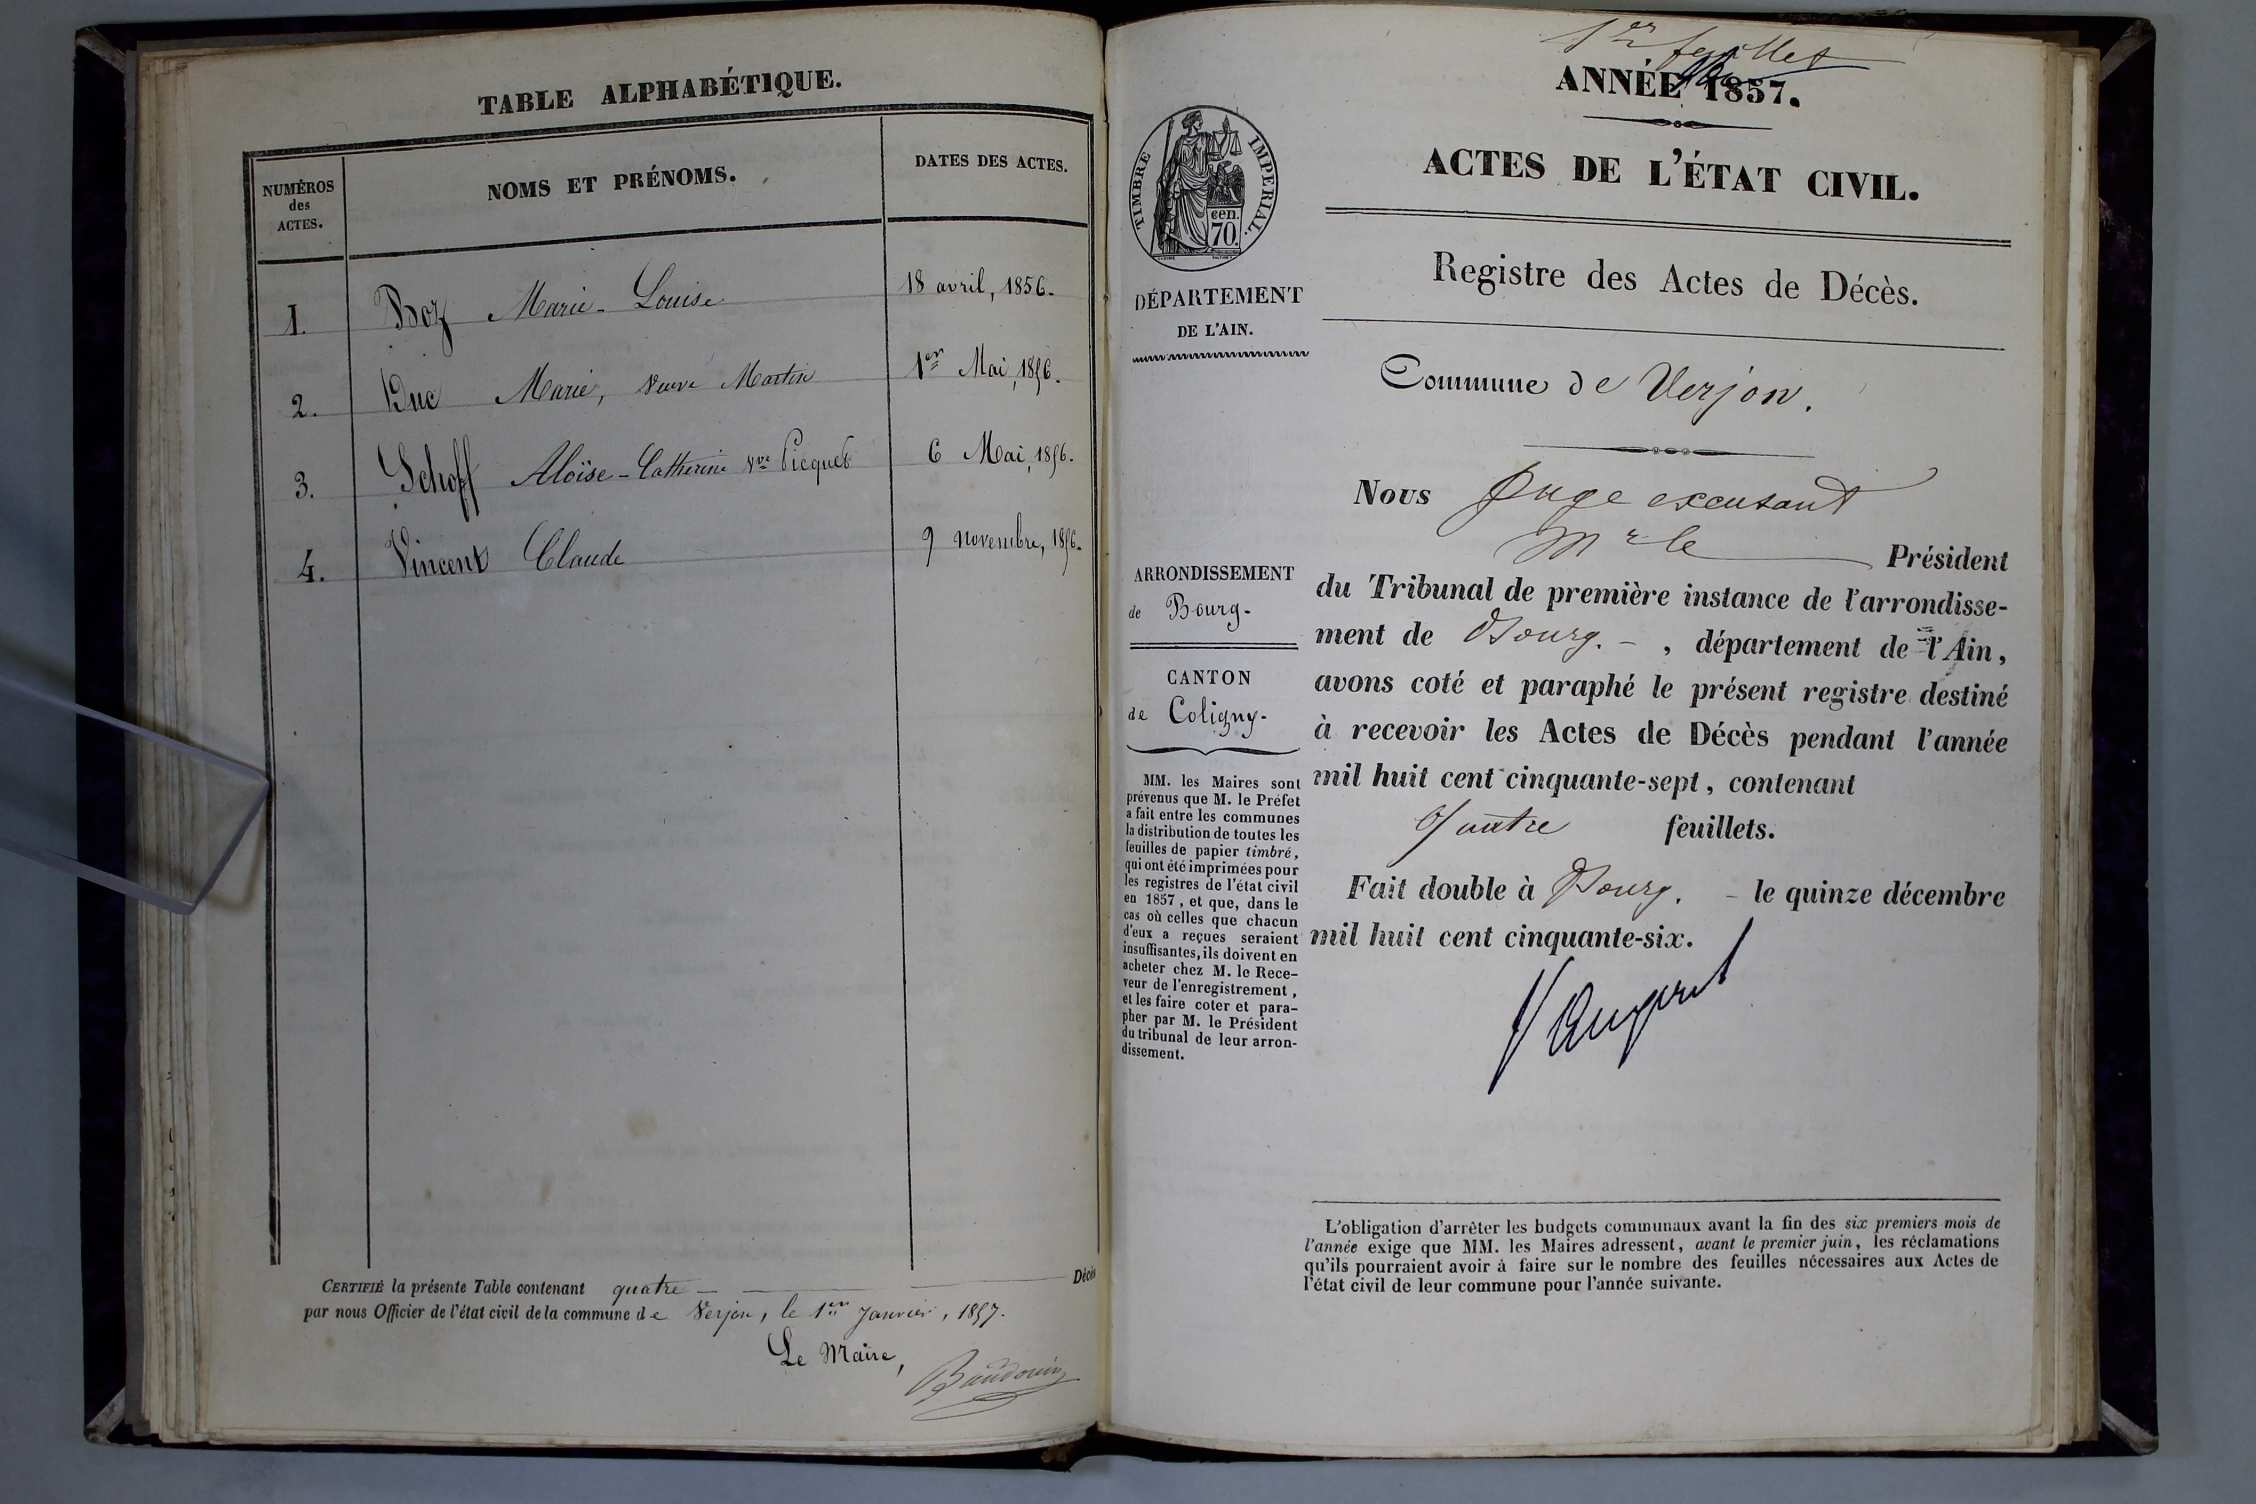 TABLE ALPHABÉTIQUE.
NUMÉROS des ACTES.
NOMS ET PRÉNOMS.
DATES DES ACTES.
1. Boz Marie-Louise 18 avril, 1856.
2. Duc Marie, veuve Martin 1er Mai, 1856.
3. Schoff Aloïse-Catherine Vve Picquet 6 Mai, 1856.
4. Vincent Claude 9 novembre, 1856.
CERTIFIÉ la présente Table contenant quatre Décès
par nous Officier de l'état civil de la commune de Verjon, le 1er Janvier, 1857.
Le Maire,
Baudouin
1er feuillet
ANNÉE 1857.
ACTES DE L'ÉTAT CIVIL.
TIMBRE IMPERIAL.
cen.
70.
DÉPARTEMENT
DE L'AIN.
ARRONDISSEMENT
de Bourg-
CANTON
de Coligny-
MM. les Maires sont
prévenus que M. le Préfet
a fait entre les communes
la distribution de toutes les
feuilles de papier timbré,
qui ont été imprimées pour
les registres de l'état civil
en 1857, et que, dans le
cas où celles que chacun
d'eux a reçues seraient
insuffisantes, ils doivent en
acheter chez M. le Rece-
veur de l'enregistrement,
et les faire coter et para-
pher par M. le Président
du tribunal de leur arron-
dissement.
Registre des Actes de Décès.
Commune de Verjon.
Nous Juge excusant
Mr le Président
du Tribunal de première instance de l'arrondisse-
ment de Bourg. - , département de l'Ain,
avons coté et paraphé le présent registre destiné
à recevoir les Actes de Décès pendant l'année
mil huit cent cinquante-sept, contenant
Quatre feuillets.
Fait double à Bourg. - le quinze décembre
mil huit cent cinquante-six.
L'obligation d'arrêter les budgets communaux avant la fin des six premiers mois de
l'année exige que MM. les Maires adressent, avant le premier juin, les réclamations
qu'ils pourraient avoir à faire sur le nombre des feuilles nécessaires aux Actes de
l'état civil de leur commune pour l'année suivante.